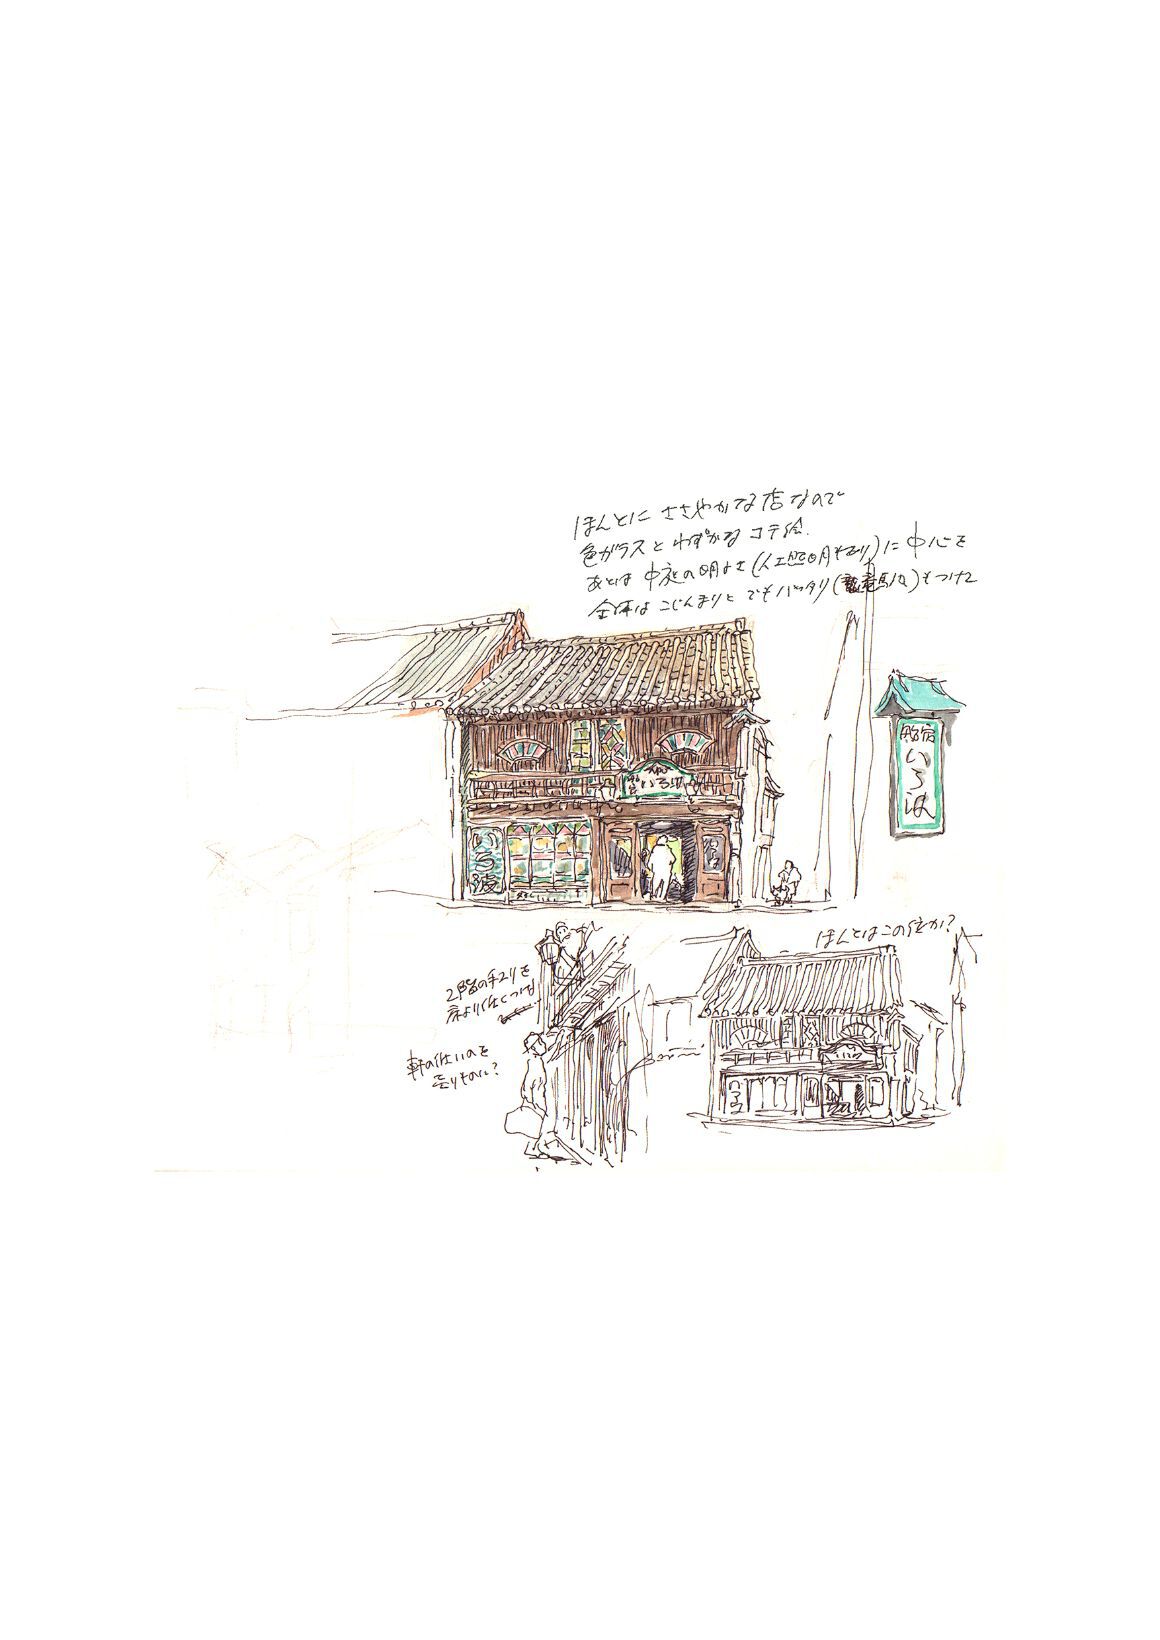 ほんとに ささやかな店なので
色ガラスと わずかな コテ絵.
あとは 中庭の明るさ (人工照明もあり)に 中心を
全体は こじんまりと でもバッタリ ( 竜馬 )もつけて
いろは
いろ波
旅宿
いろ波
ほんとはこの位か?
2階の手スリを
床より低くつける
軒の低いのを
売りものに?
いろは